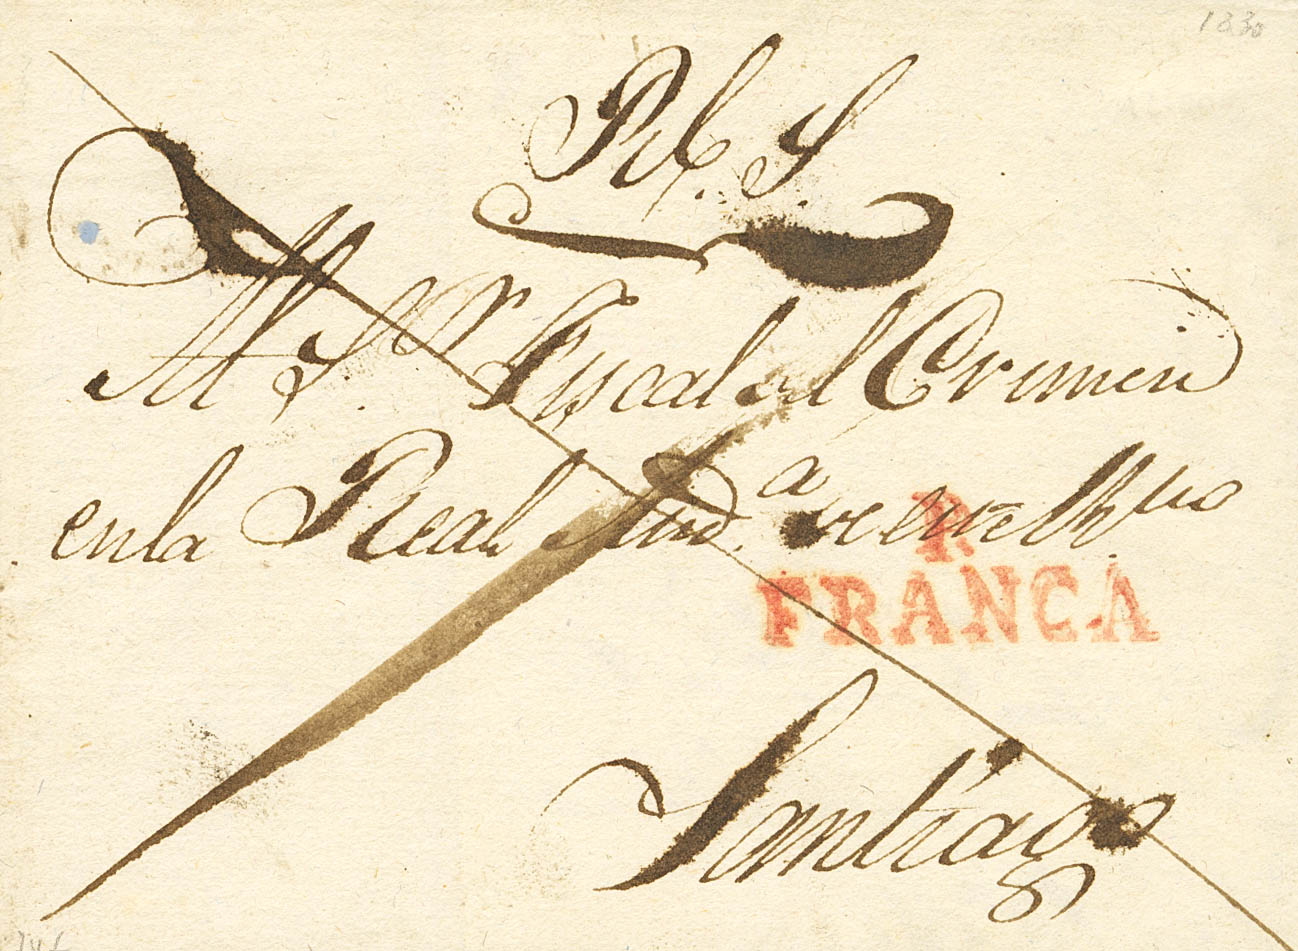 1830
Rl. S.
Al Sr. Fiscal del Crimen
en la Real Aud.a
R
FRANCA
Santiago